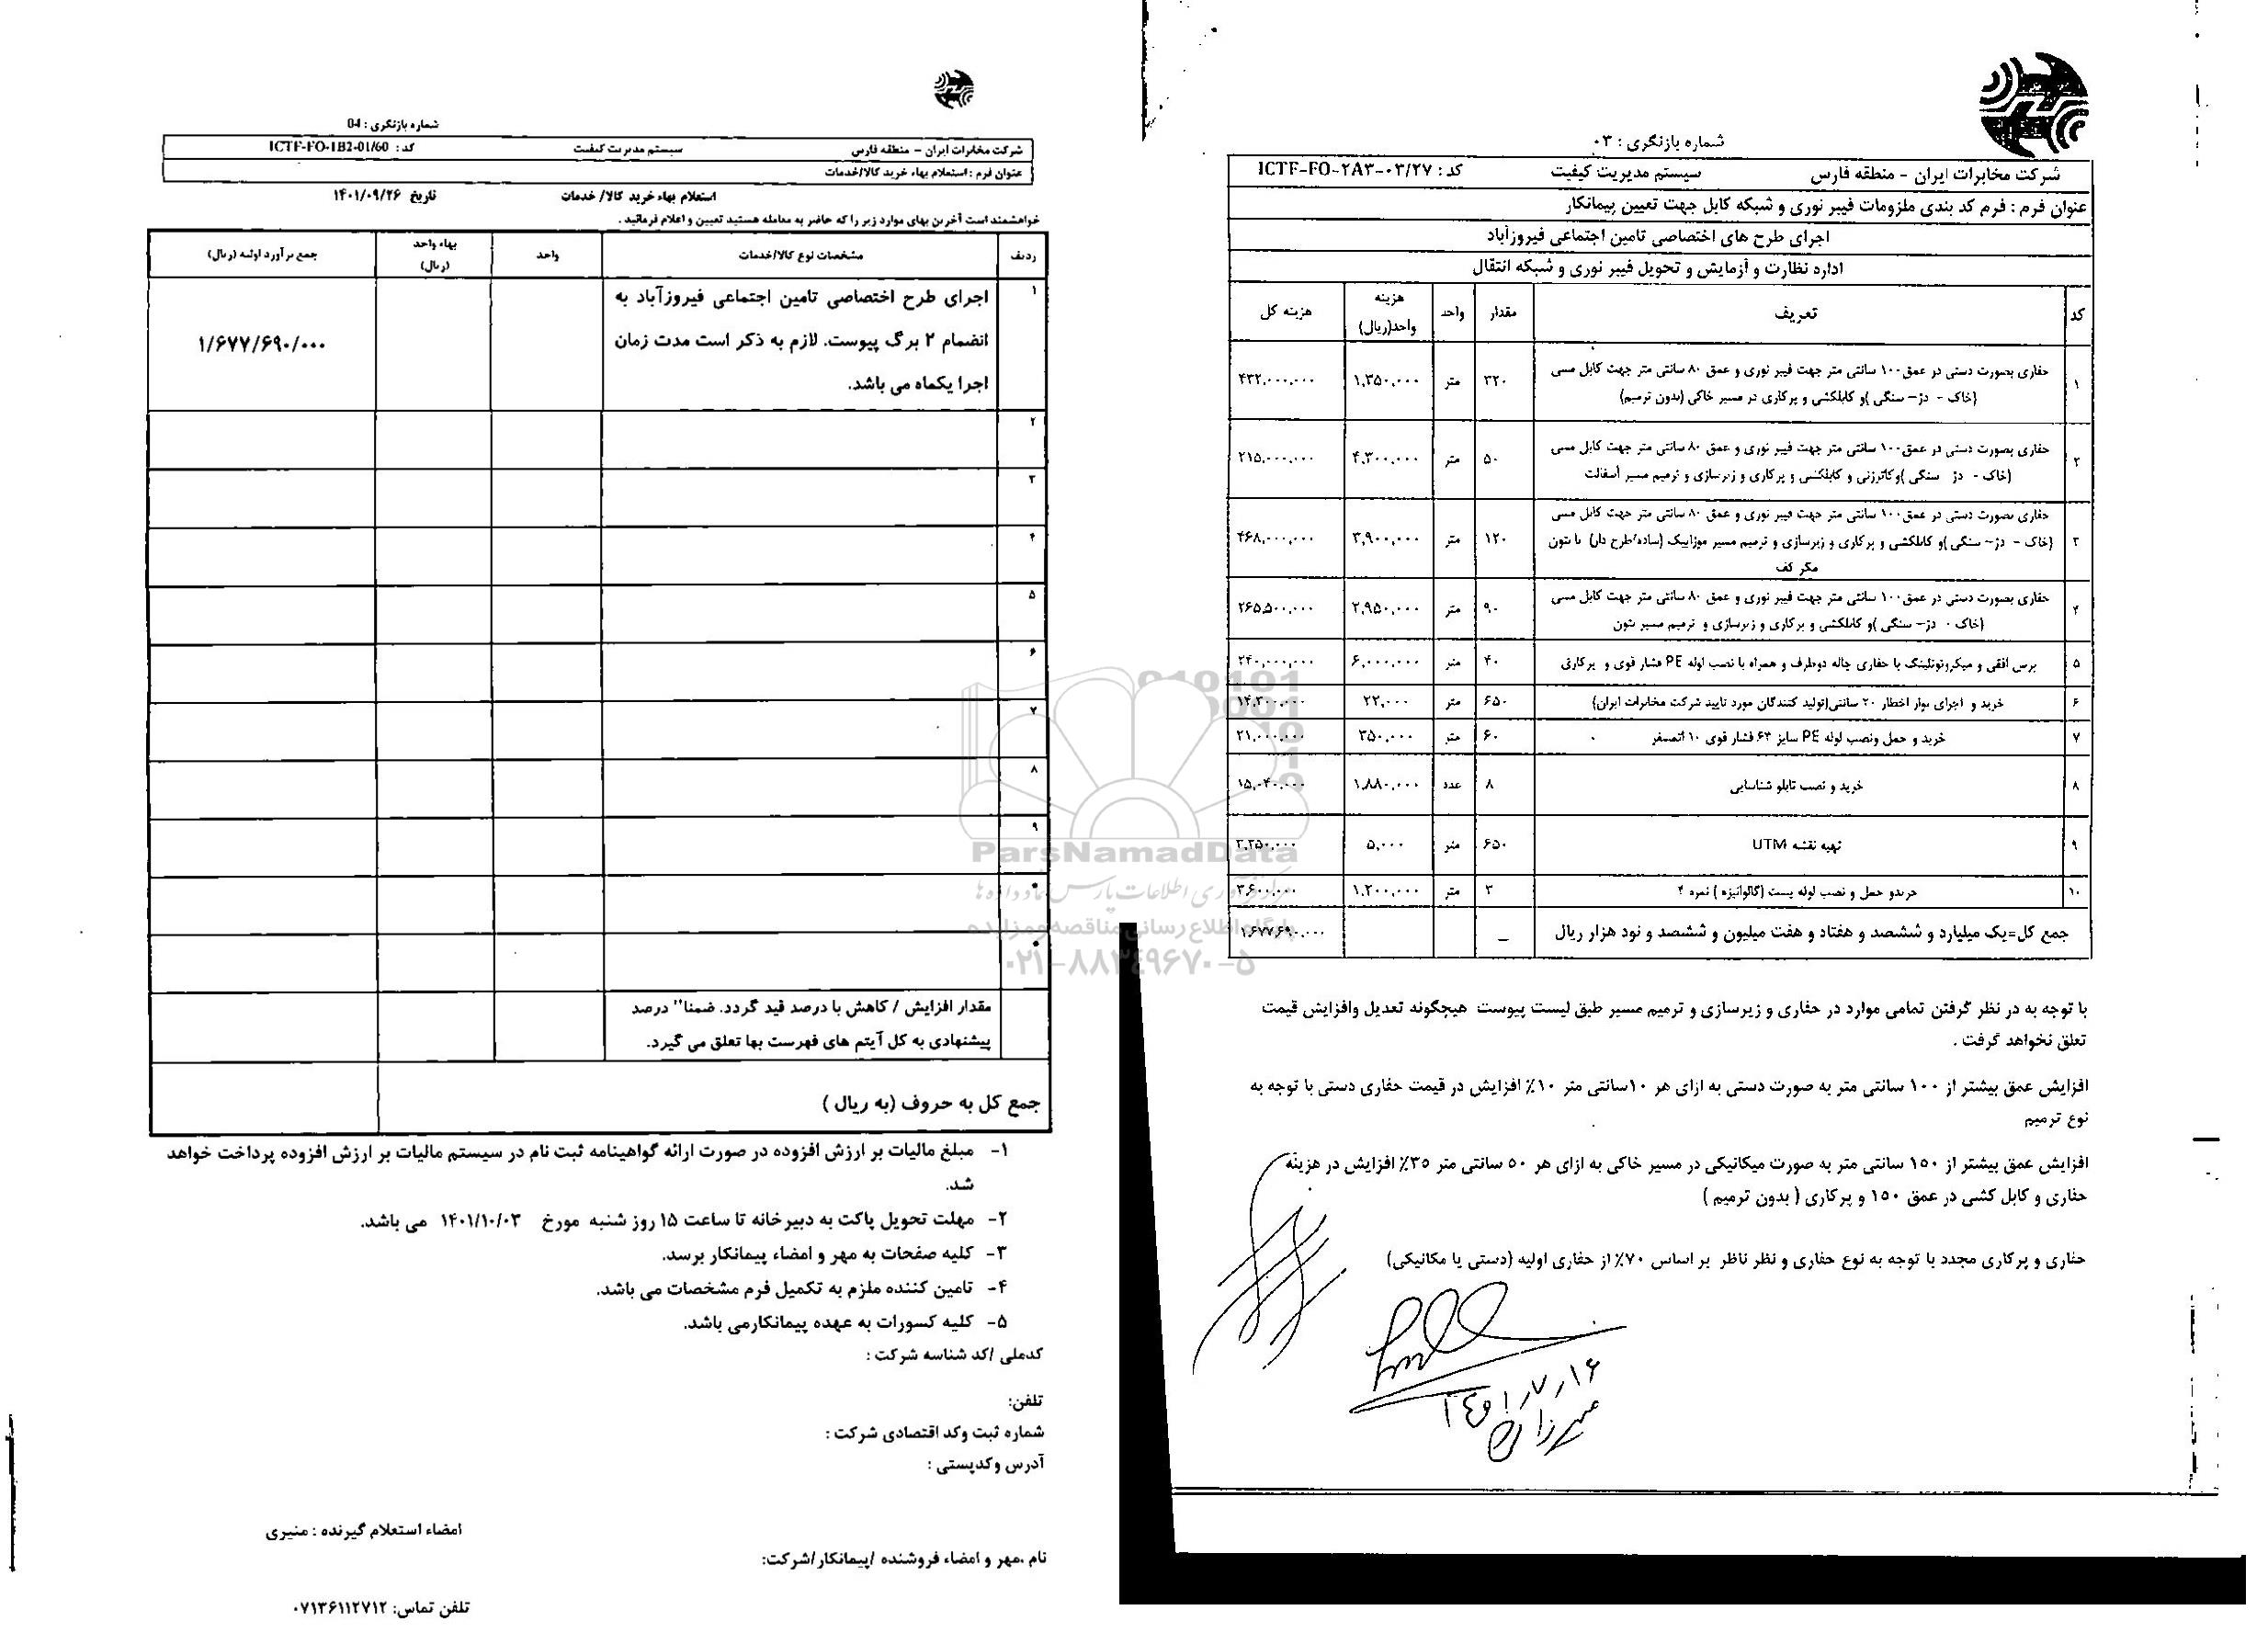 شماره بازنگری : ۰۳
شرکت مخابرات ایران – منطقه فارس سیستم مدیریت کیفیت کد : ICTF-FO-۲A۳-۰۳/۲۷
عنوان فرم : فرم کد بندی ملزومات فیبر نوری و شبکه کابل جهت تعیین پیمانکار
اجرای طرح های اختصاصی تامین اجتماعی فیروزآباد
اداره نظارت و آزمایش و تحویل فیبر نوری و شبکه انتقال
کد تعریف مقدار واحد هزینه واحد(ریال) هزینه کل
۱ حفاری بصورت دستی در عمق۱۰۰ سانتی متر جهت فیبر نوری و عمق ۸۰ سانتی متر جهت کابل مسی
(خاک - دژ– سنگی )و کابلکشی و پرکاری در مسیر خاکی (بدون ترمیم) ۳۲۰ متر ۱,۳۵۰,۰۰۰ ۴۳۲,۰۰۰,۰۰۰
۲ حفاری بصورت دستی در عمق۱۰۰ سانتی متر جهت فیبر نوری و عمق ۸۰ سانتی متر جهت کابل مسی
(خاک - دژ سنگی )وکاترزنی و کابلکشی و پرکاری و زیرسازی و ترمیم مسیر آسفالت ۵۰ متر ۴,۳۰۰,۰۰۰ ۲۱۵,۰۰۰,۰۰۰
۳ حفاری بصورت دستی در عمق۱۰۰ سانتی متر جهت فیبر نوری و عمق ۸۰ سانتی متر جهت کابل مسی
(خاک - دژ– سنگی )و کابلکشی و پرکاری و زیرسازی و ترمیم مسیر موزاییک (ساده/طرح دار) با بتون
مگر کف ۱۲۰ متر ۳,۹۰۰,۰۰۰ ۴۶۸,۰۰۰,۰۰۰
۴ حفاری بصورت دستی در عمق۱۰۰ سانتی متر جهت فیبر نوری و عمق ۸۰ سانتی متر جهت کابل مسی
(خاک - دژ– سنگی )و کابلکشی و پرکاری و زیرسازی و ترمیم مسیر بتون ۹۰ متر ۲,۹۵۰,۰۰۰ ۲۶۵,۵۰۰,۰۰۰
۵ برس افقی و میکروتونلینگ با حفاری چاله دوطرف و همراه با نصب لوله PE فشار قوی و پرکاری ۴۰ متر ۶,۰۰۰,۰۰۰ ۲۴۰,۰۰۰,۰۰۰
۶ خرید و اجرای نوار اخطار ۲۰ سانتی(تولید کنندگان مورد تایید شرکت مخابرات ایران) ۶۵۰ متر ۲۲,۰۰۰ ۱۴,۳۰۰,۰۰۰
۷ خرید و حمل ونصب لوله PE سایز ۶۳ فشار قوی ۱۰ اتمسفر ۶۰ متر ۳۵۰,۰۰۰ ۲۱,۰۰۰,۰۰۰
۸ خرید و نصب تابلو شناسایی ۸ عدد ۱,۸۸۰,۰۰۰ ۱۵,۰۴۰,۰۰۰
۹ تهیه نقشه UTM ۶۵۰ متر ۵,۰۰۰ ۳,۲۵۰,۰۰۰
۱۰ خریدو حمل و نصب لوله پست (گالوانیزه ) نمره ۴ ۳ متر ۱,۲۰۰,۰۰۰ ۳,۶۰۰,۰۰۰
جمع کل=یک میلیارد و ششصد و هفتاد و هفت میلیون و ششصد و نود هزار ریال – ۱,۶۷۷,۶۹۰,۰۰۰
با توجه به در نظر گرفتن تمامی موارد در حفاری و زیرسازی و ترمیم مسیر طبق لیست پیوست هیچگونه تعدیل وافزایش قیمت
تعلق نخواهد گرفت .
افزایش عمق بیشتر از ۱۰۰ سانتی متر به صورت دستی به ازای هر ۱۰سانتی متر ۱۰٪ افزایش در قیمت حفاری دستی با توجه به
نوع ترمیم
افزایش عمق بیشتر از ۱۵۰ سانتی متر به صورت میکانیکی در مسیر خاکی به ازای هر ۵۰ سانتی متر ۳۵٪ افزایش در هزینه
حفاری و کابل کشی در عمق ۱۵۰ و پرکاری ( بدون ترمیم )
حفاری و پرکاری مجدد با توجه به نوع حفاری و نظر ناظر بر اساس ۷۰٪ از حفاری اولیه (دستی یا مکانیکی)
۱۴۰۱/۷/۱۶
شماره بازنگری : 04
شرکت مخابرات ایران – منطقه فارس سیستم مدیریت کیفیت کد : ICTF-FO-1B2-01/60
عنوان فرم : استعلام بهاء خرید کالا/خدمات
استعلام بهاء خرید کالا/ خدمات تاریخ ۱۴۰۱/۰۹/۲۶
خواهشمند است آخرین بهای موارد زیر را که حاضر به معامله هستید تعیین و اعلام فرمائید .
ردیف مشخصات نوع کالا/خدمات واحد بهاء واحد (ریال) جمع برآورد اولیه (ریال)
۱ اجرای طرح اختصاصی تامین اجتماعی فیروزآباد به
انضمام ۲ برگ پیوست. لازم به ذکر است مدت زمان ۱/۶۷۷/۶۹۰/۰۰۰
اجرا یکماه می باشد.
۲
۳
۴
۵
۶
۷
۸
۹
مقدار افزایش / کاهش با درصد قید گردد. ضمنا" درصد
پیشنهادی به کل آیتم های فهرست بها تعلق می گیرد.
جمع کل به حروف (به ریال )
۱- مبلغ مالیات بر ارزش افزوده در صورت ارائه گواهینامه ثبت نام در سیستم مالیات بر ارزش افزوده پرداخت خواهد
شد.
۲- مهلت تحویل پاکت به دبیرخانه تا ساعت ۱۵ روز شنبه مورخ ۱۴۰۱/۱۰/۰۳ می باشد.
۳- کلیه صفحات به مهر و امضاء پیمانکار برسد.
۴- تامین کننده ملزم به تکمیل فرم مشخصات می باشد.
۵- کلیه کسورات به عهده پیمانکارمی باشد.
کدملی /کد شناسه شرکت :
تلفن:
شماره ثبت وکد اقتصادی شرکت :
آدرس وکدپستی :
امضاء استعلام گیرنده : منیری
نام ،مهر و امضاء فروشنده /پیمانکار/شرکت:
تلفن تماس: ۰۷۱۳۶۱۱۲۷۱۲
ParsNamadData
پایگاه اطلاع رسانی مناقصه و مزایده
۰۲۱-۸۸۳۴۹۶۷۰-۵